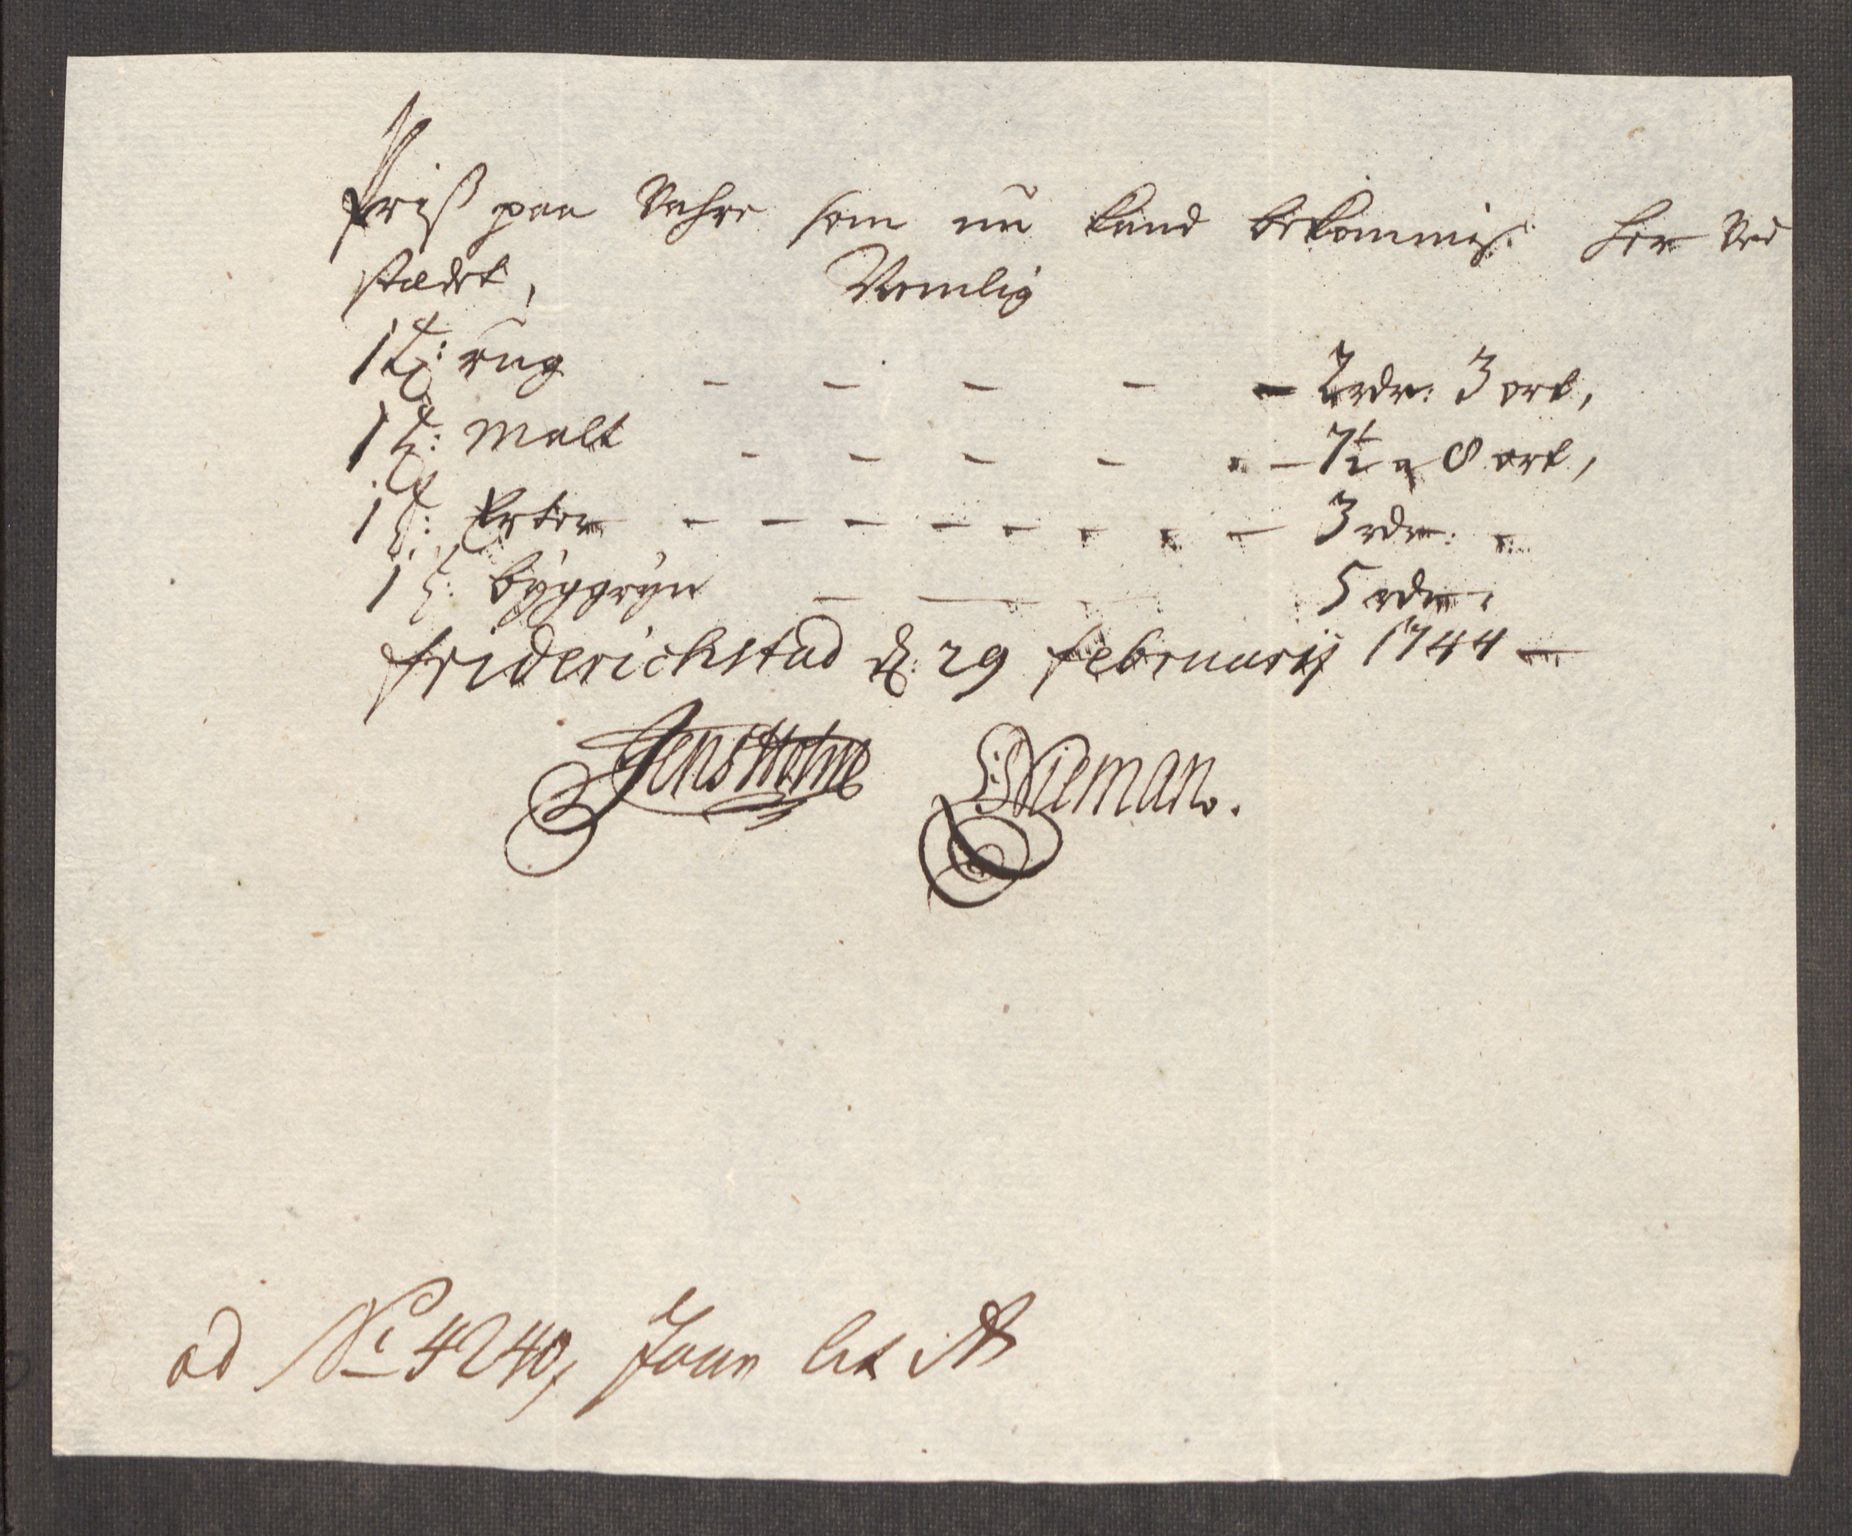 Priß paa Vahre som nu kand bekommis her Ved
stædet, Nemlig
1 Td: rug - - - - - 2 rdr: 3 ort,
1 Td: Malt - - - - - - 7½ a 8 ort,
1 Td: Erter - - - - - - - - - 3 rdr:
1 Td: byggryn - - - 5 rdr:
Friderichstad d: 29 Februarij 1744
Jens Holme Nieman.
ad No 4240, Joun lit A